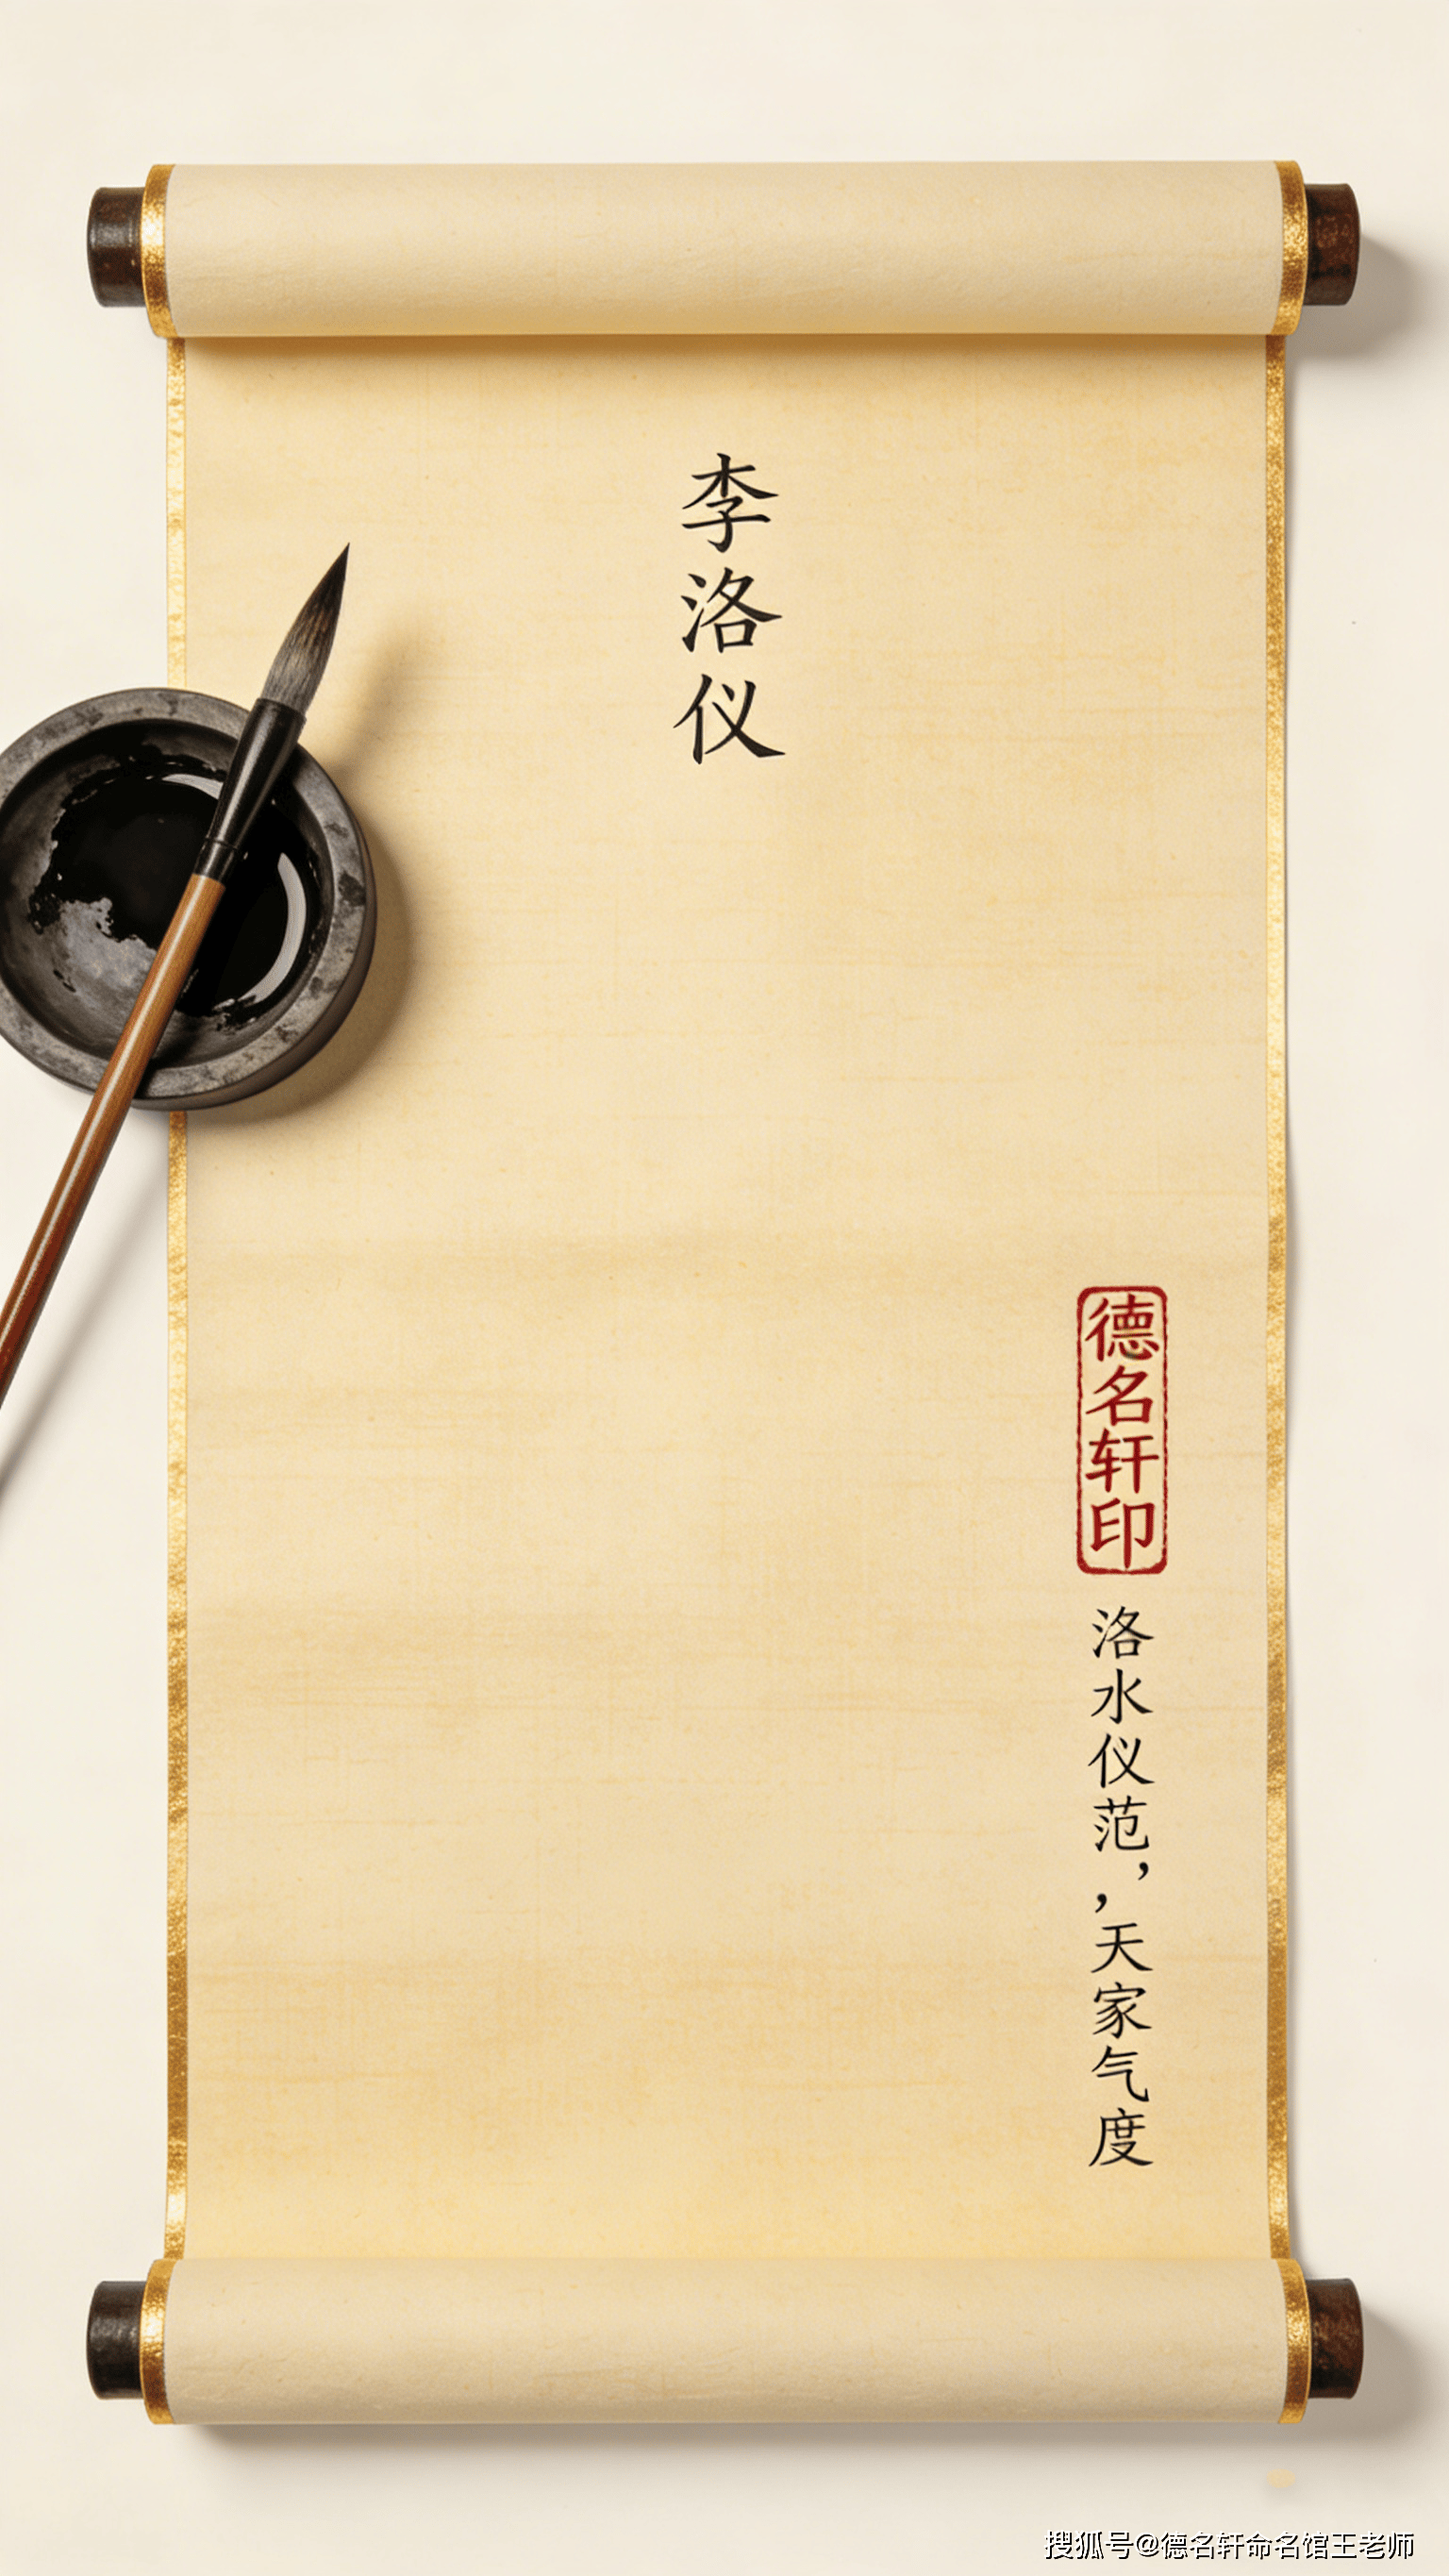 李洛仪
德名轩印
洛水仪范，，天家气度
搜狐号@德名轩命名馆王老师